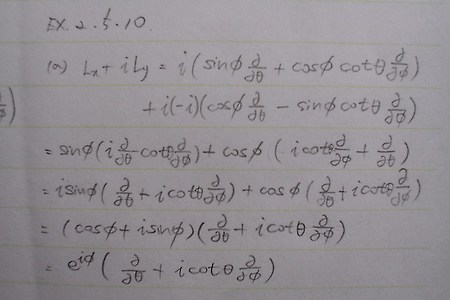 EX. 2.5.10.
(a) Lx + iLy = i(sinϕ ∂/∂θ + cosϕ cotθ ∂/∂ϕ)
+ i(-i)(cosϕ ∂/∂θ - sinϕ cotθ ∂/∂ϕ)
= sinϕ(i ∂/∂θ cotθ ∂/∂ϕ) + cosϕ (i cotθ ∂/∂ϕ + ∂/∂θ)
= i sinϕ(∂/∂θ + i cotθ ∂/∂ϕ) + cosϕ (∂/∂θ + i cotθ ∂/∂ϕ)
= (cosϕ + i sinϕ)(∂/∂θ + i cotθ ∂/∂ϕ)
= e^{iϕ} (∂/∂θ + i cotθ ∂/∂ϕ)